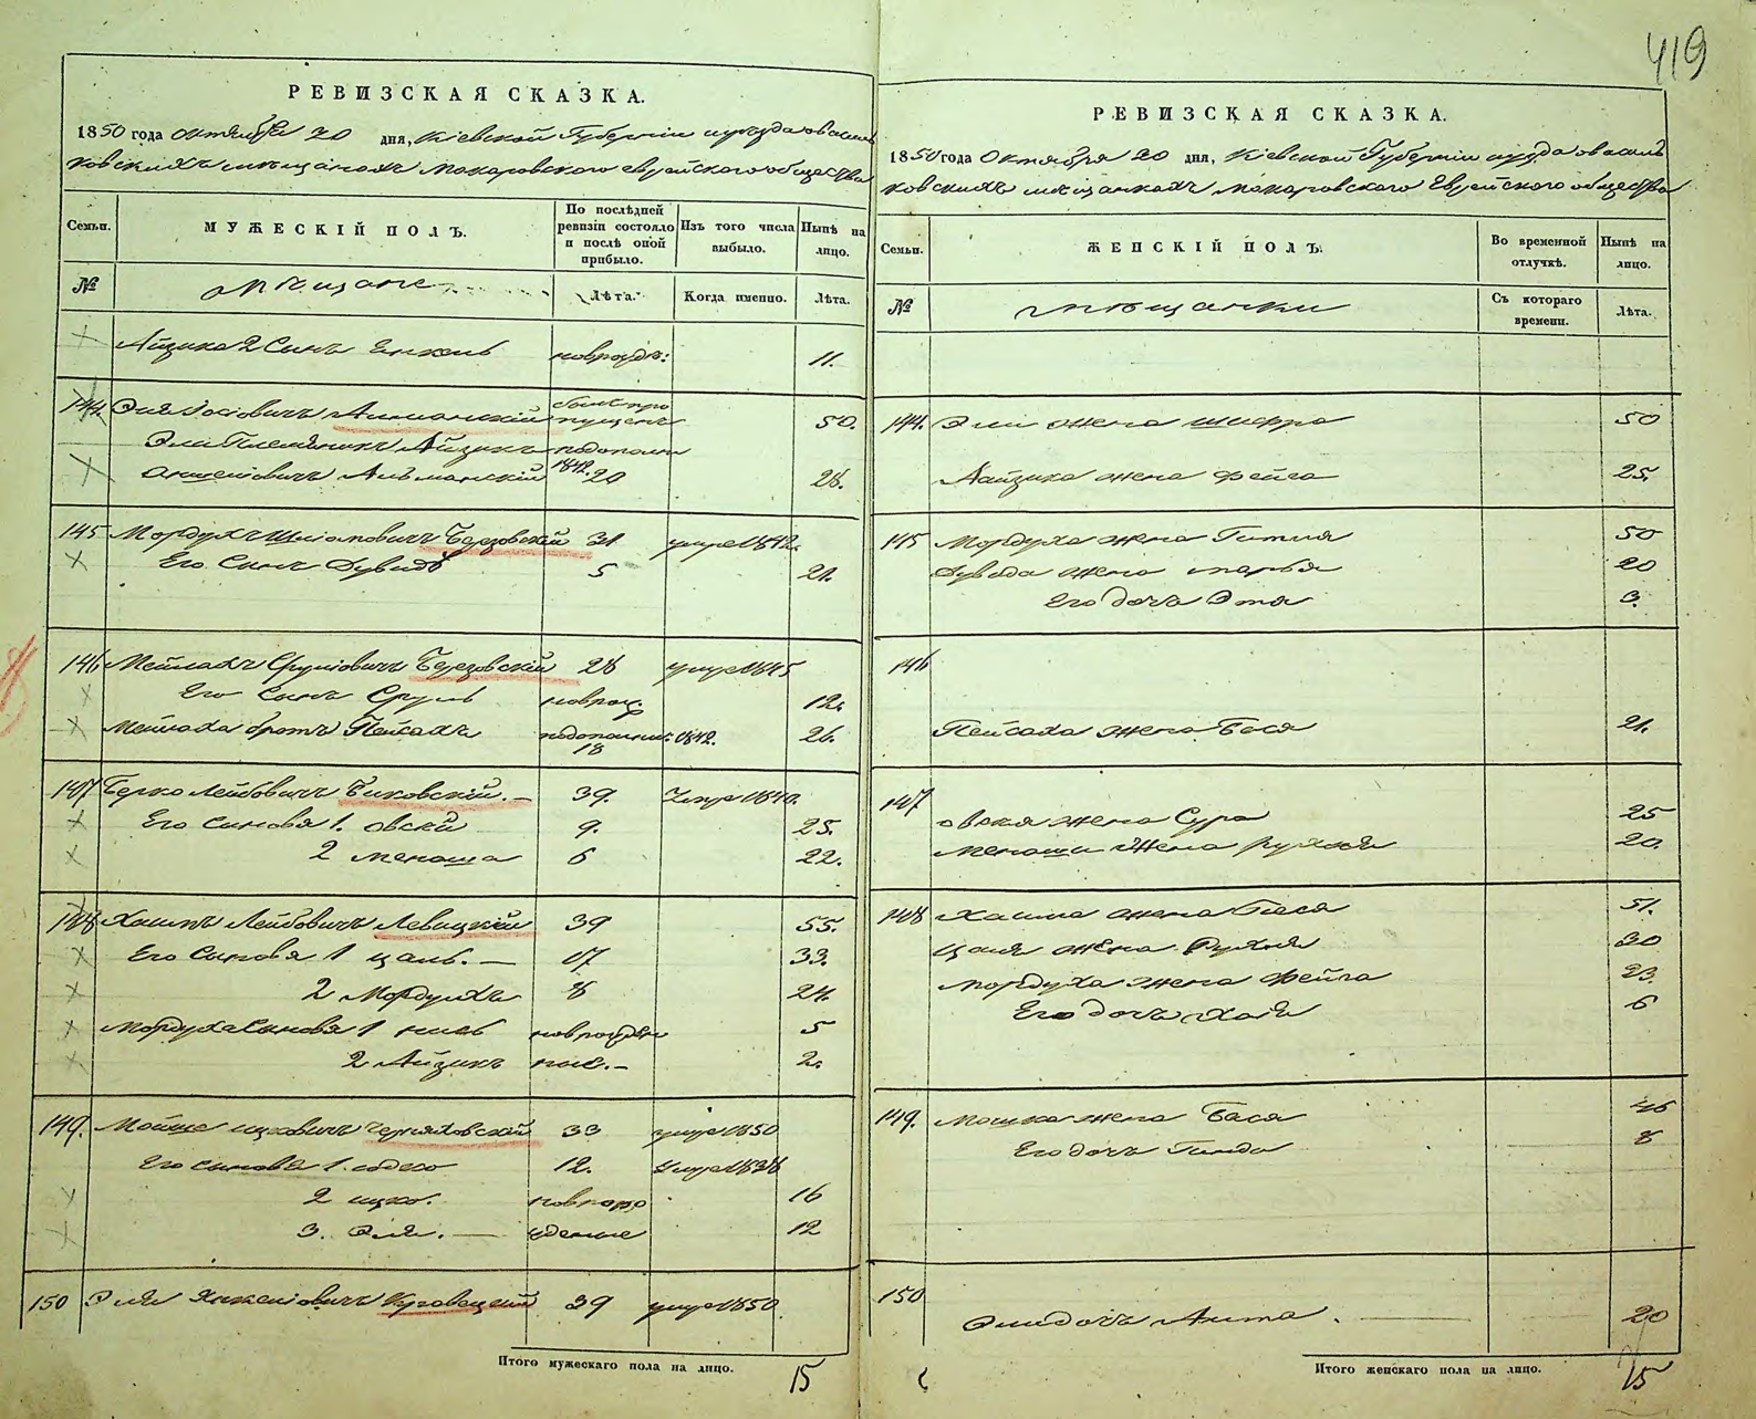 419
РЕВИЗСКАЯ СКАЗКА.
1850 года Октября 20 дня, Кіевской Губерніи уѣзда о василь
ковскихъ мѣщанахъ Макаровского еврейского общества
Семьи.
МУЖЕСКІЙ ПОЛЪ.
По послѣдней ревизіи состояло и послѣ оной прибыло.
Изъ того числа выбыло.
Нынѣ на лицо.
№
Мѣщане
Лѣта.
Когда именно.
Лѣта.
Айзика 2 Сынъ Енкель новрожд: 11.
144. Эля Іосіовичъ Альманскій былъ пропущенъ 50.
Эли Племянникъ Айзикъ
Аншеліовичъ Альманскій 1842. 20 28.
145 Мордухъ Шліомовичъ Березовскій 31 умре 1842.
Его Сынъ Дувидъ 5 21.
146 Мейлахъ Сруліовичъ Березовскій 28 умре 1845
Его Сынъ Сруль новрожд. 12.
Мейлаха братъ Пейсахъ 1842. 18 26.
147 Берко Лейбовичъ Биковскій. 39. Умре 1840.
Его синовья 1. Овсій 9. 25.
2 Менаша 6 22.
148 Хаимъ Лейбовичъ Левицкій 39 55.
Его Синовья 1 Цаль. 17 33.
2 Мордухъ 8 24.
Мордуха Синовья 1 новрожден 5
2 Айзикъ ные. 2.
149. Мойше Ицковичъ Черняховскій 33 умре 1850
Его синовья 1. 12. Умре 1838
2 Ицко. новрож 16
3. Эля. денные 12
150 Эля Янкеліовичъ 39 умре 1850.
Итого мужескаго пола на лицо. 15
РЕВИЗСКАЯ СКАЗКА.
1850 года Октября 20 дня, Кіевской Губерніи уѣзда о василь
ковскихъ мѣщанкахъ Макаровского Еврейского общества
Семьи.
ЖЕНСКІЙ ПОЛЪ.
Во временной отлучкѣ.
Нынѣ на лицо.
№
Мѣщанки
Съ котораго времени.
Лѣта.
144. Эли жена Шифра 50
Айзика жена Фейга 25.
145 Мордуха жена Гитля 50
Дувида жена Марья 20
Его дочь Эта 3.
146
Пейсаха жена Бася 21.
147
Овсея жена Сура 25
Менаши жена Рухля 20.
148 Хаима жена Песя 51.
Цаля жена Рухля 30
Мордуха жена Фейга 23.
Его дочь Хая 6
149. Мошка жена Бася 46
Его дочь Гинда 8
150
Эли дочь Анта. 20
Итого женскаго пола на лицо. 15